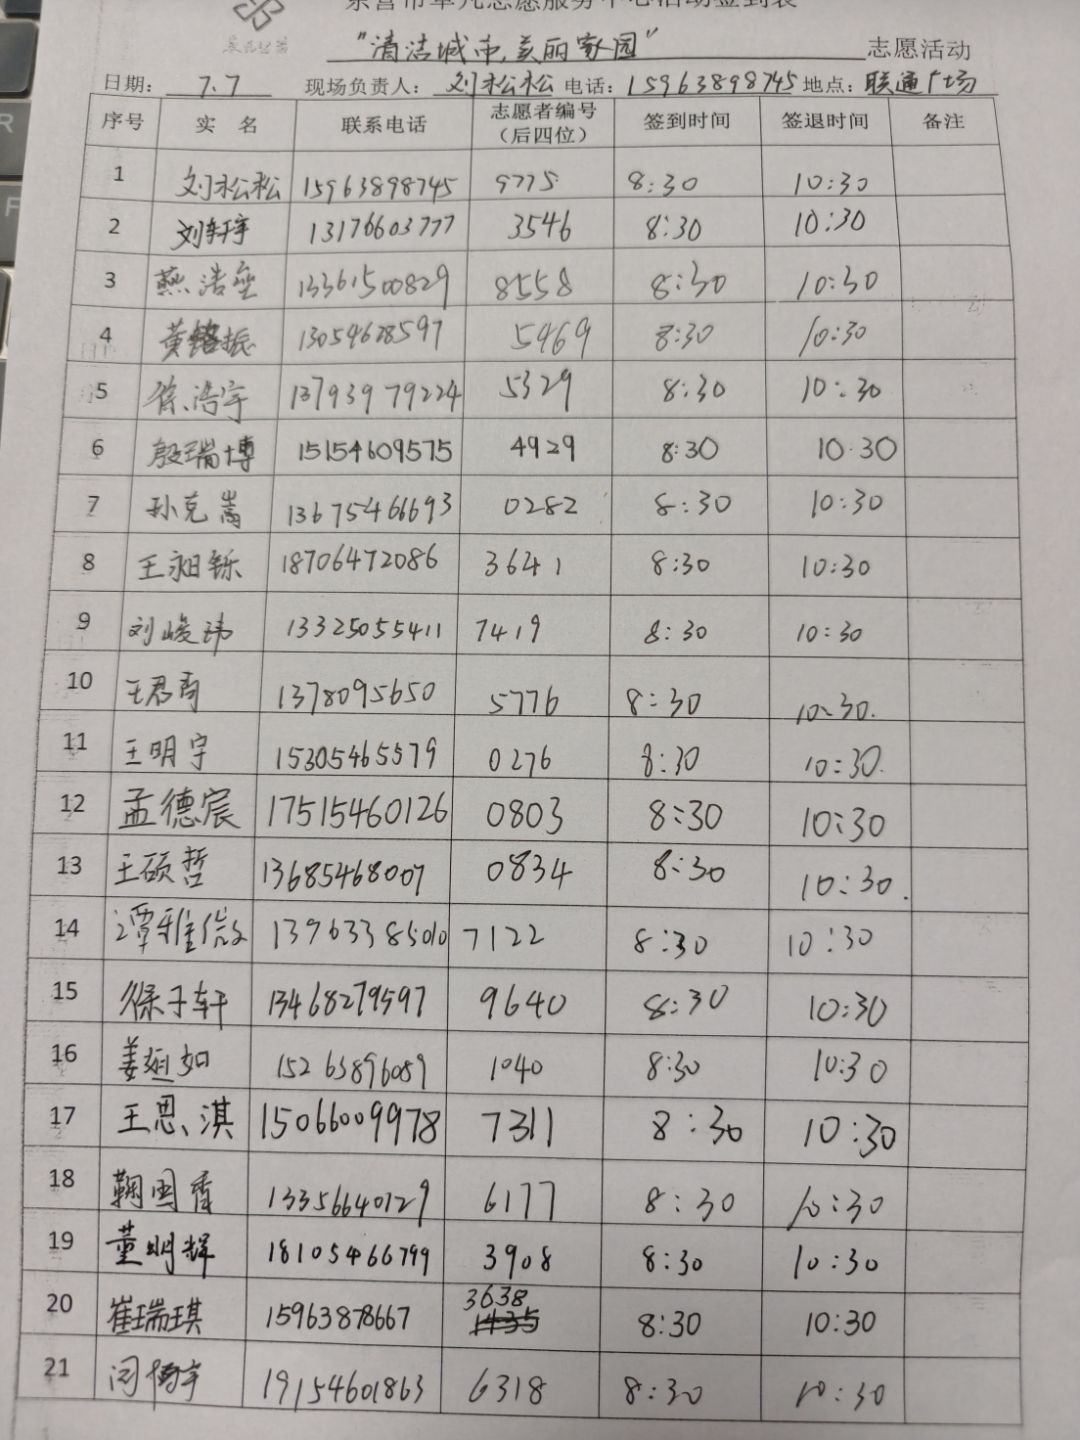 东营市草凡志愿服务中心活动签到表
"清洁城市,美丽家园" 志愿活动
日期: 7.7 现场负责人: 刘松松 电话: 15963898745 地点: 联通广场
序号 实 名 联系电话 志愿者编号(后四位) 签到时间 签退时间 备注
1 刘松松 15963898745 9775 8:30 10:30
2 刘轩宇 13176603777 3546 8:30 10:30
3 燕浩 13361500829 8558 8:30 10:30
4 黄铭振 13054628597 5969 8:30 10:30
5 徐浩宇 13793979224 5329 8:30 10:30
6 殷瑞博 15154609575 4929 8:30 10:30
7 孙克嵩 13675466693 0282 8:30 10:30
8 王昶铄 18706472086 3641 8:30 10:30
9 刘峻玮 13325055411 7419 8:30 10:30
10 王君 1378095650 5776 8:30 10:30.
11 王明宇 15305465579 0276 8:30 10:30.
12 孟德宸 17515460126 0803 8:30 10:30
13 王硕哲 13685468007 0834 8:30 10:30.
14 谭雅 13963385010 7122 8:30 10:30
15 徐子轩 13468279597 9640 8:30 10:30
16 姜如 15263896089 1040 8:30 10:30
17 王思淇 15066009978 7311 8:30 10:30
18 鞠国香 13356640129 6177 8:30 10:30
19 董明辉 18105466799 3908 8:30 10:30
20 崔瑞琪 15963878667 3638 8:30 10:30
21 闫宇 19154601863 6318 8:30 10:30